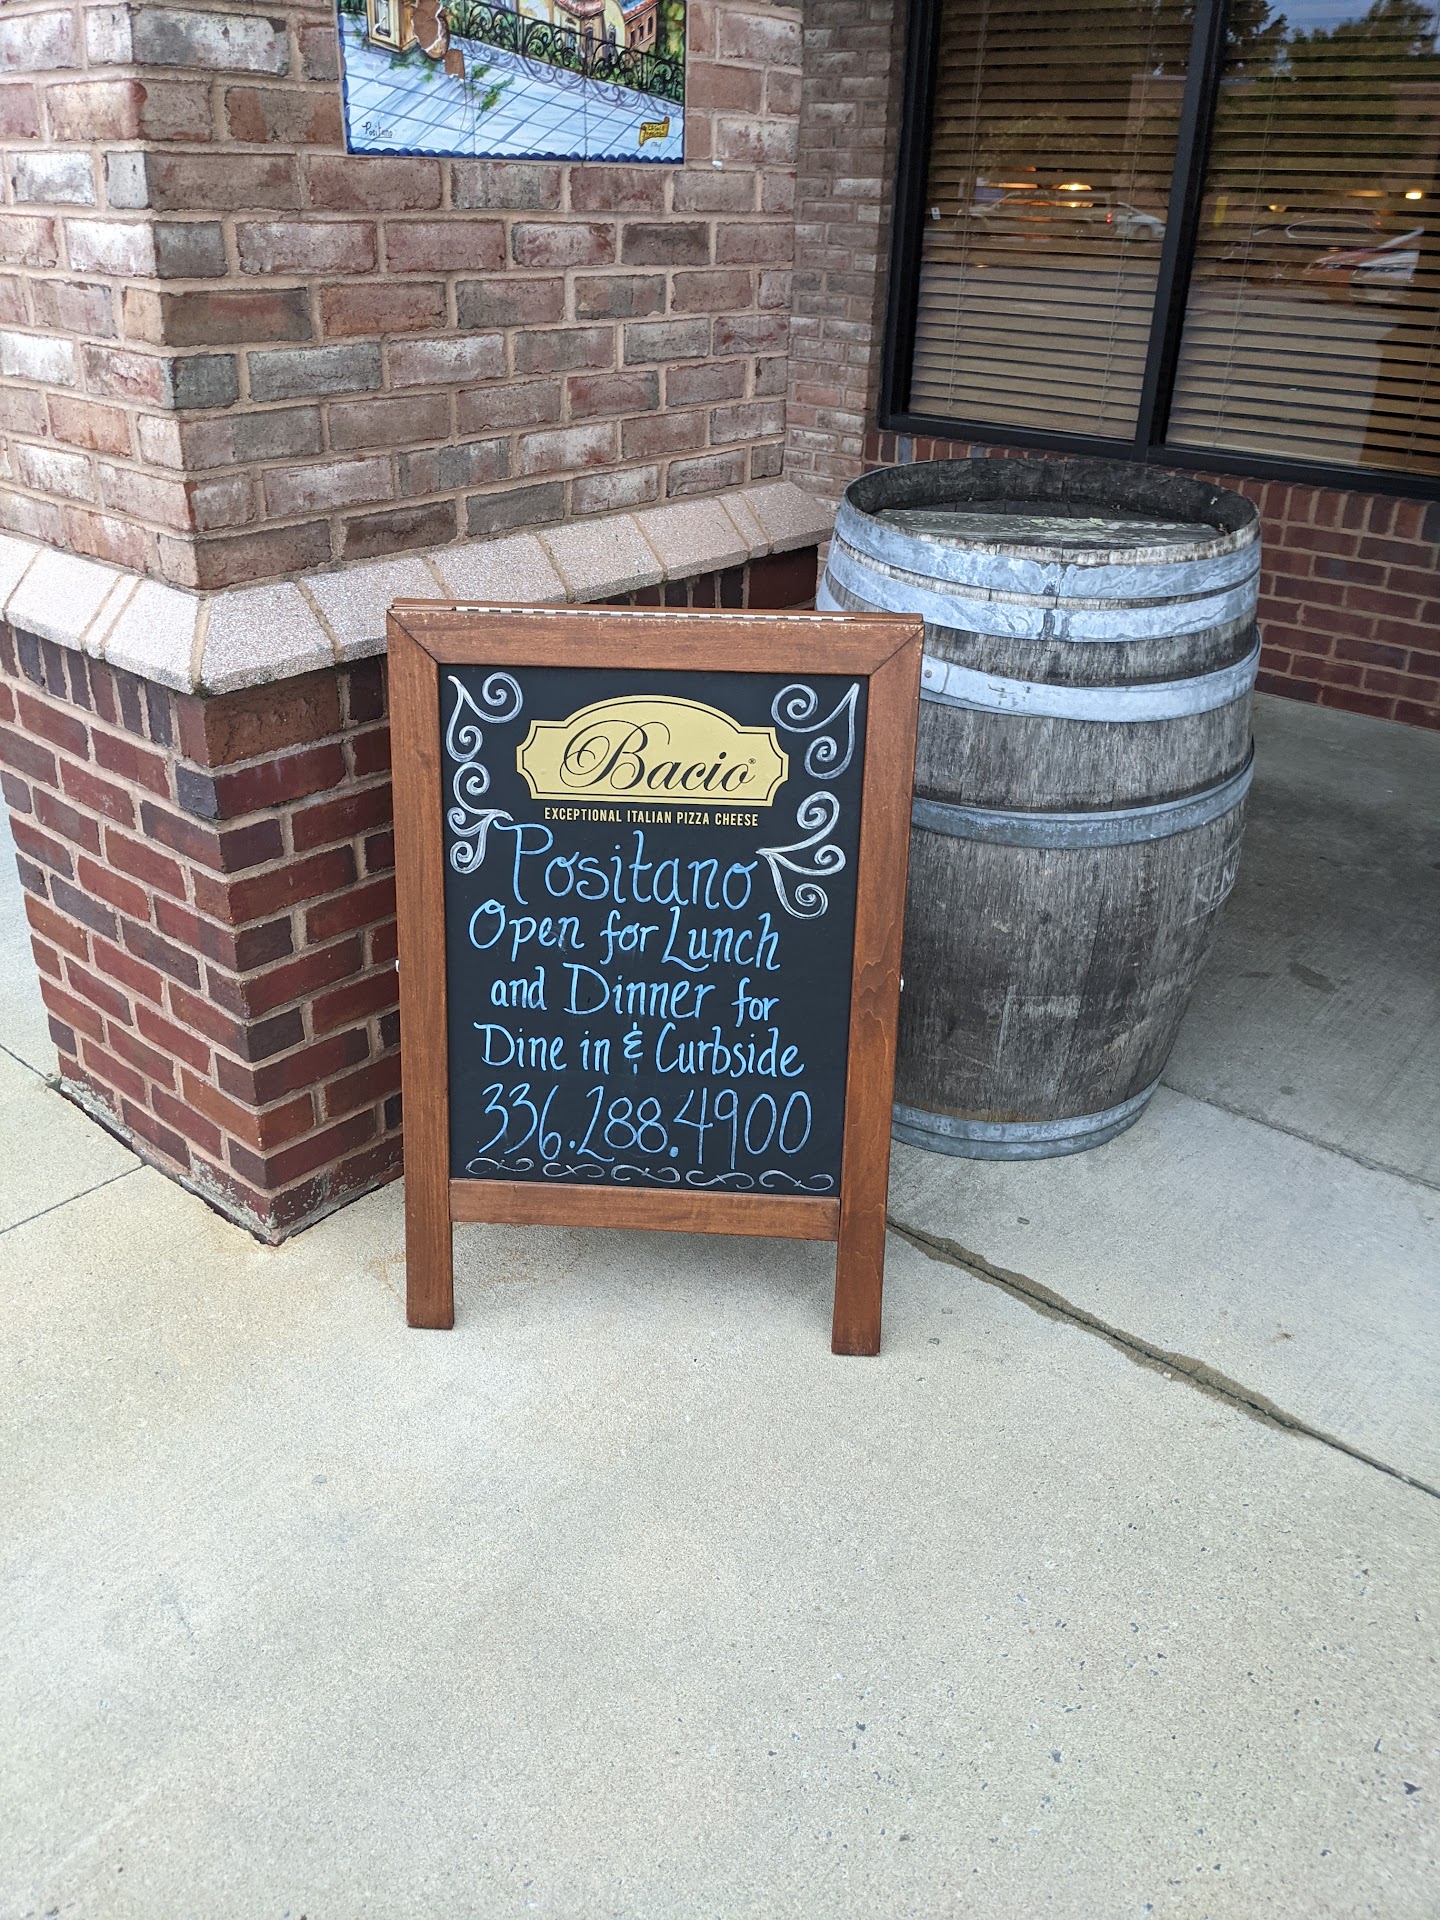 Positano
Bacio®
EXCEPTIONAL ITALIAN PIZZA CHEESE
Positano
Open for Lunch
and Dinner for
Dine in & Curbside
336.288.4900